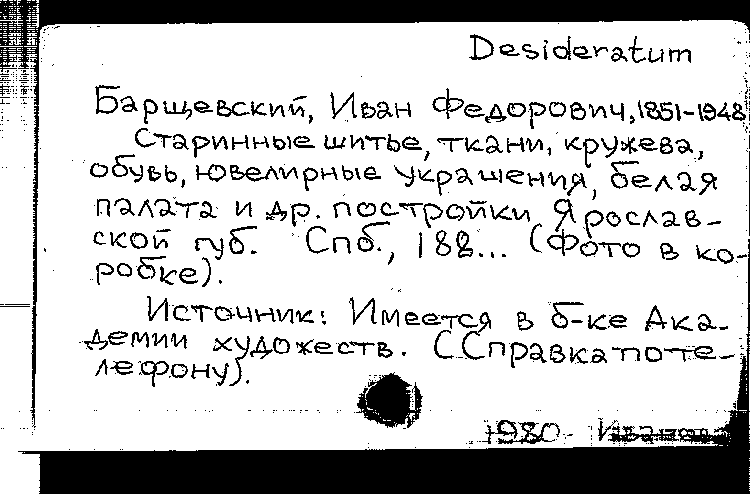 Desideratum
Барщевский, Иван Федорович, 1851-1948
Старинные шитье, ткани, кружева,
обувь, ювелирные украшения, белая
палата и др. постройки Ярослав-
ской губ. Спб., 188... (Фото в ко-
робке).
Источник: Имеется в б-ке Ака-
демии художеств. (Справка по те-
лефону).
1980 Иванова